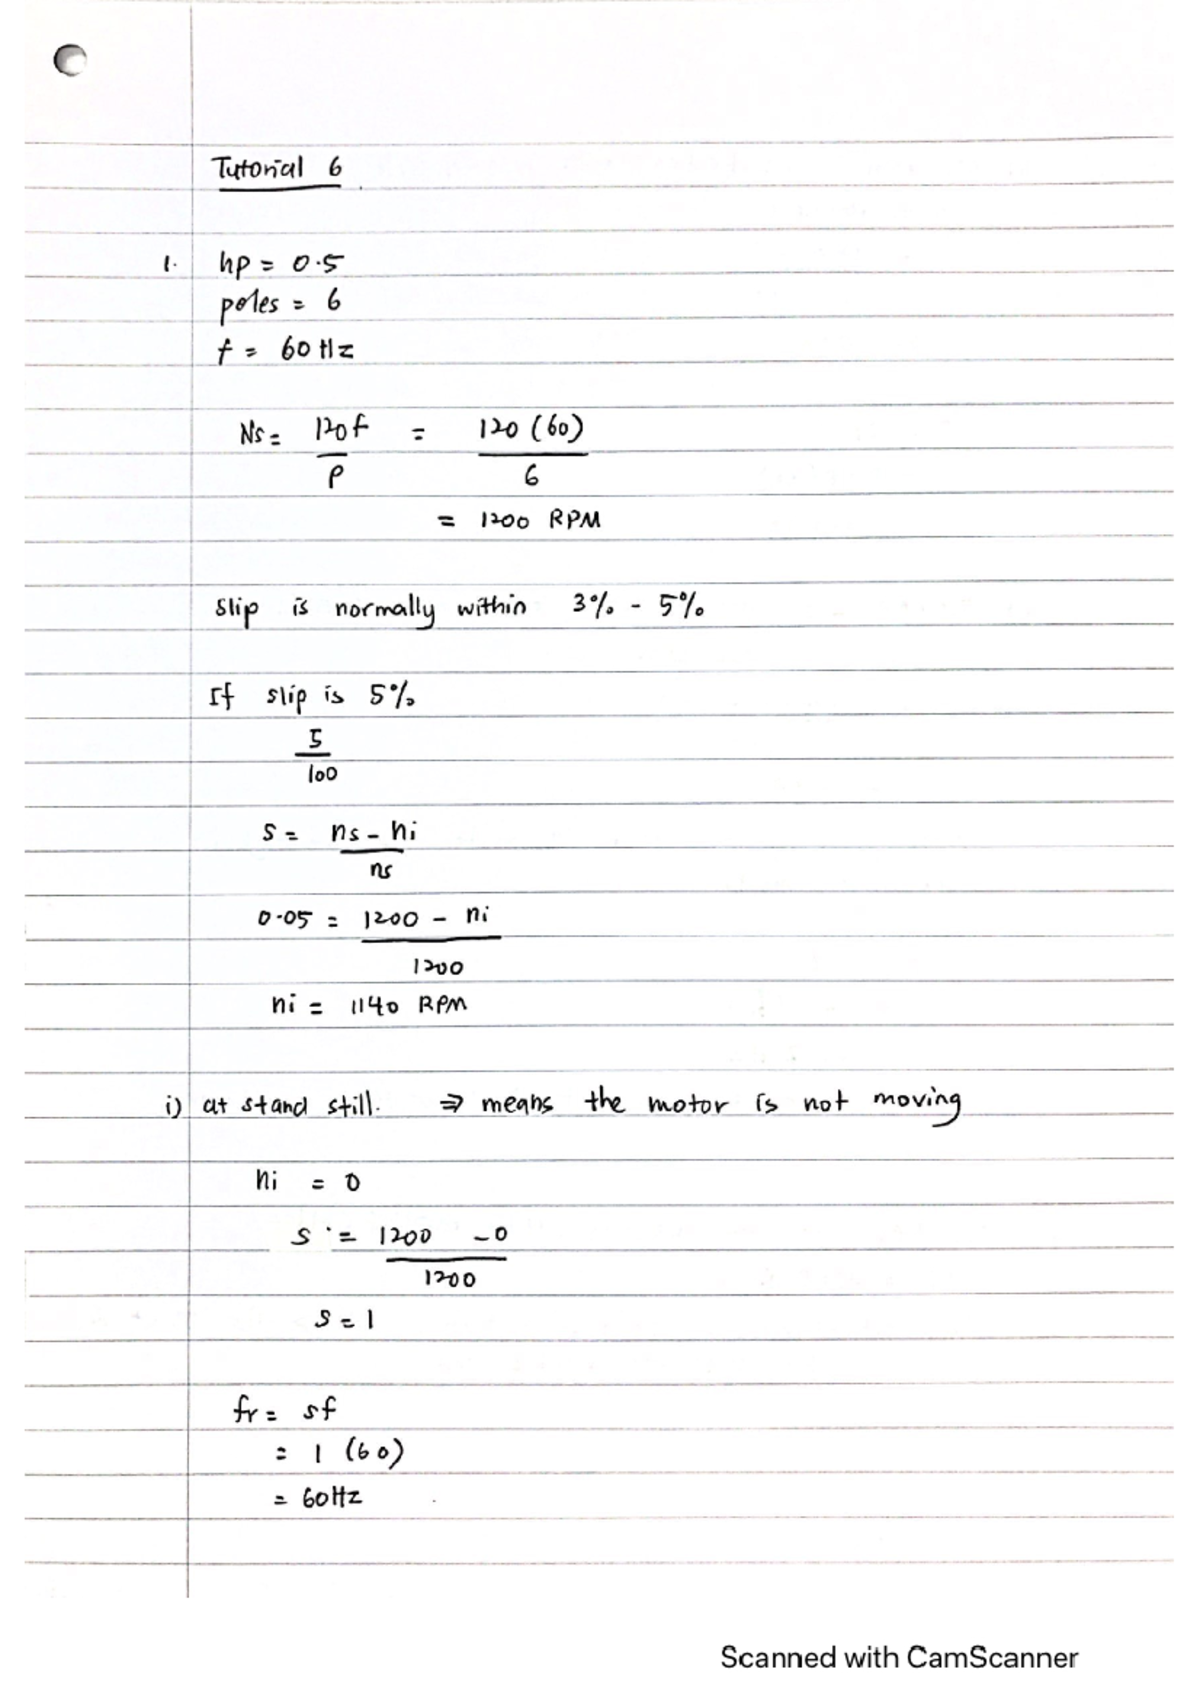 Tutorial 6
1. hp = 0.5
poles = 6
f = 60 Hz
Ns = 120f / P = 120 (60) / 6
= 1200 RPM
slip is normally within 3% - 5%
If slip is 5%
5 / 100
s = ns - ni / ns
0.05 = 1200 - ni / 1200
ni = 1140 RPM
i) at stand still. ⇒ means the motor is not moving
ni = 0
s = 1200 - 0 / 1200
s = 1
fr = sf
= 1 (60)
= 60Hz
Scanned with CamScanner